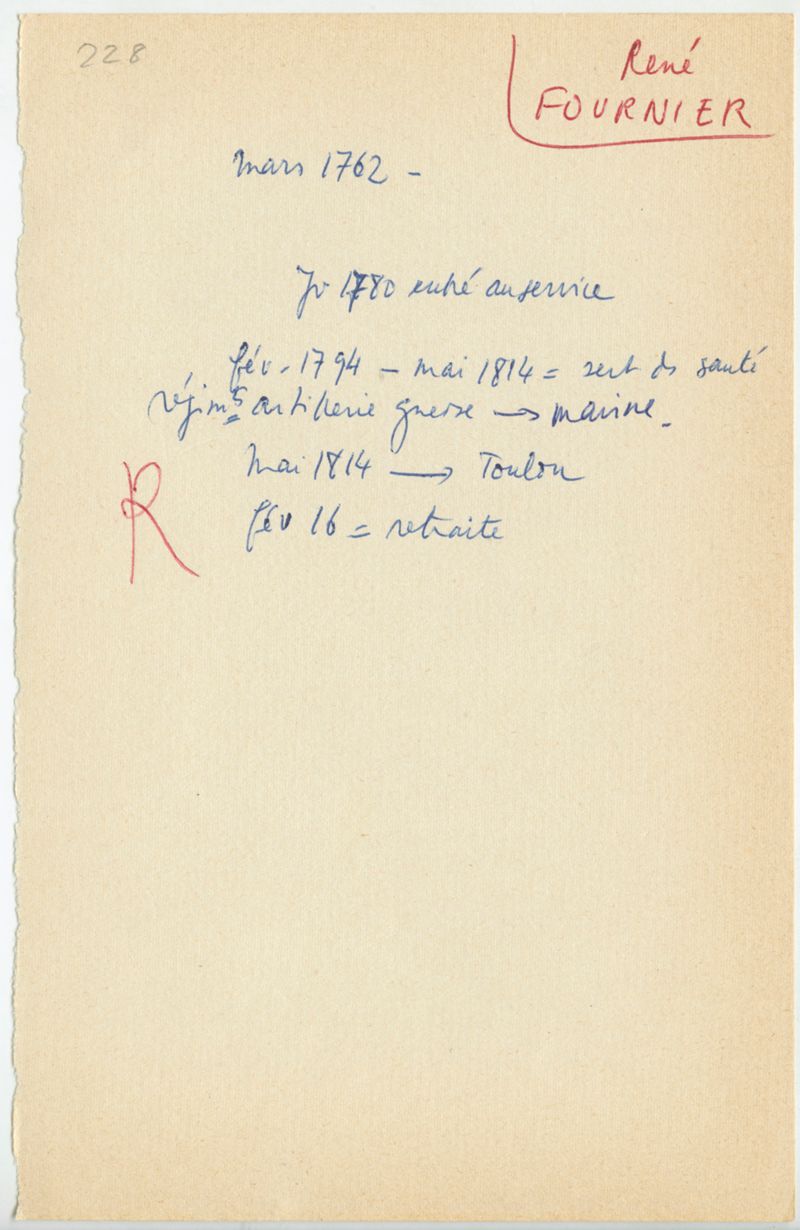 228
René
FOURNIER
mars 1762 -
Jv 1780 entré au service
fév. 1794 - mai 1814 = sert ds santé
régimts artillerie guerre → marine.
mai 1814 → Toulon
R
fév 16 = retraite